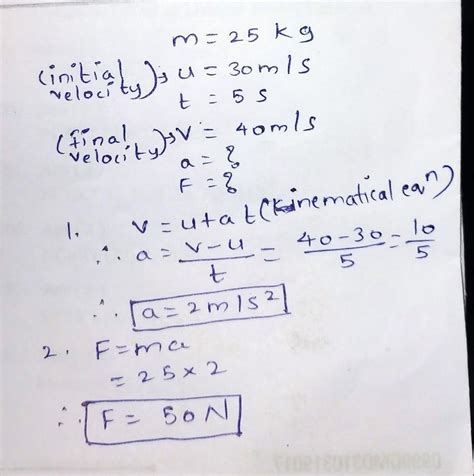 m = 25 kg
(initial velocity) → u = 30 m/s
t = 5 s
(final velocity) → v = 40 m/s
a = ?
F = ?
1. v = u + a t (kinematical eqⁿ)
∴ a = v - u / t = 40 - 30 / 5 = 10 / 5
∴ a = 2 m/s²
2. F = ma
= 25 × 2
∴ F = 50 N